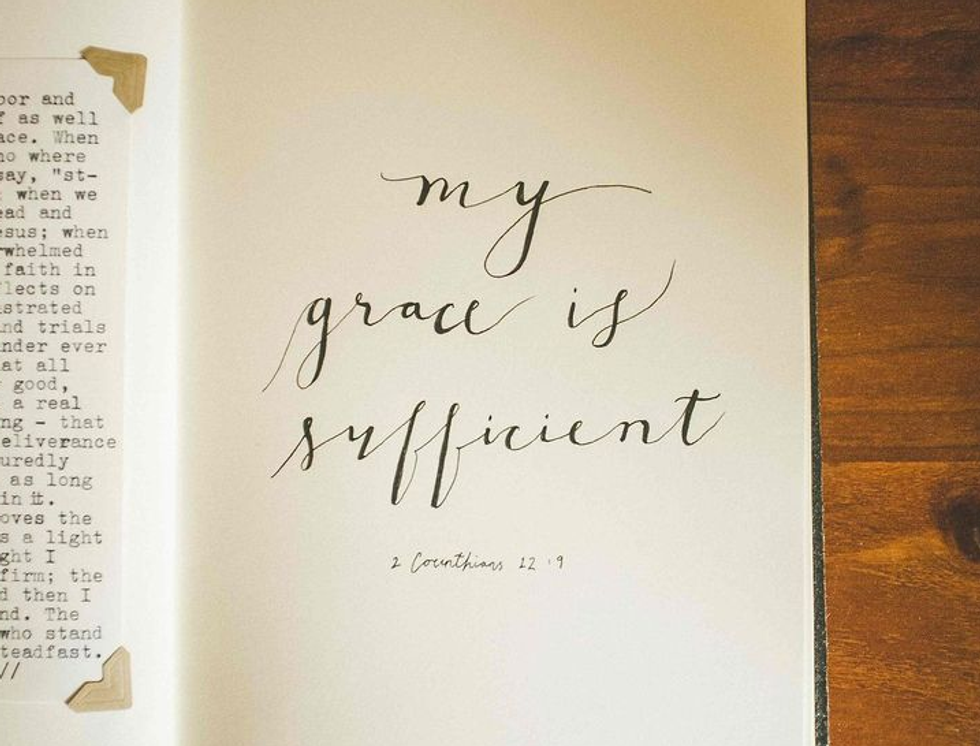 oor and
as well
ace. When
no where
say, "st-
when we
ead and
esus; when
rwhelmed
faith in
lects on
strated
nd trials
nder ever
at all
good,
a real
ng – that
eliverance
uredly
as long
in it.
oves the
s a light
ght I
firm; the
d then I
nd. The
who stand
teadfast.
//
my
grace is
sufficient
2 Corinthians 12:9